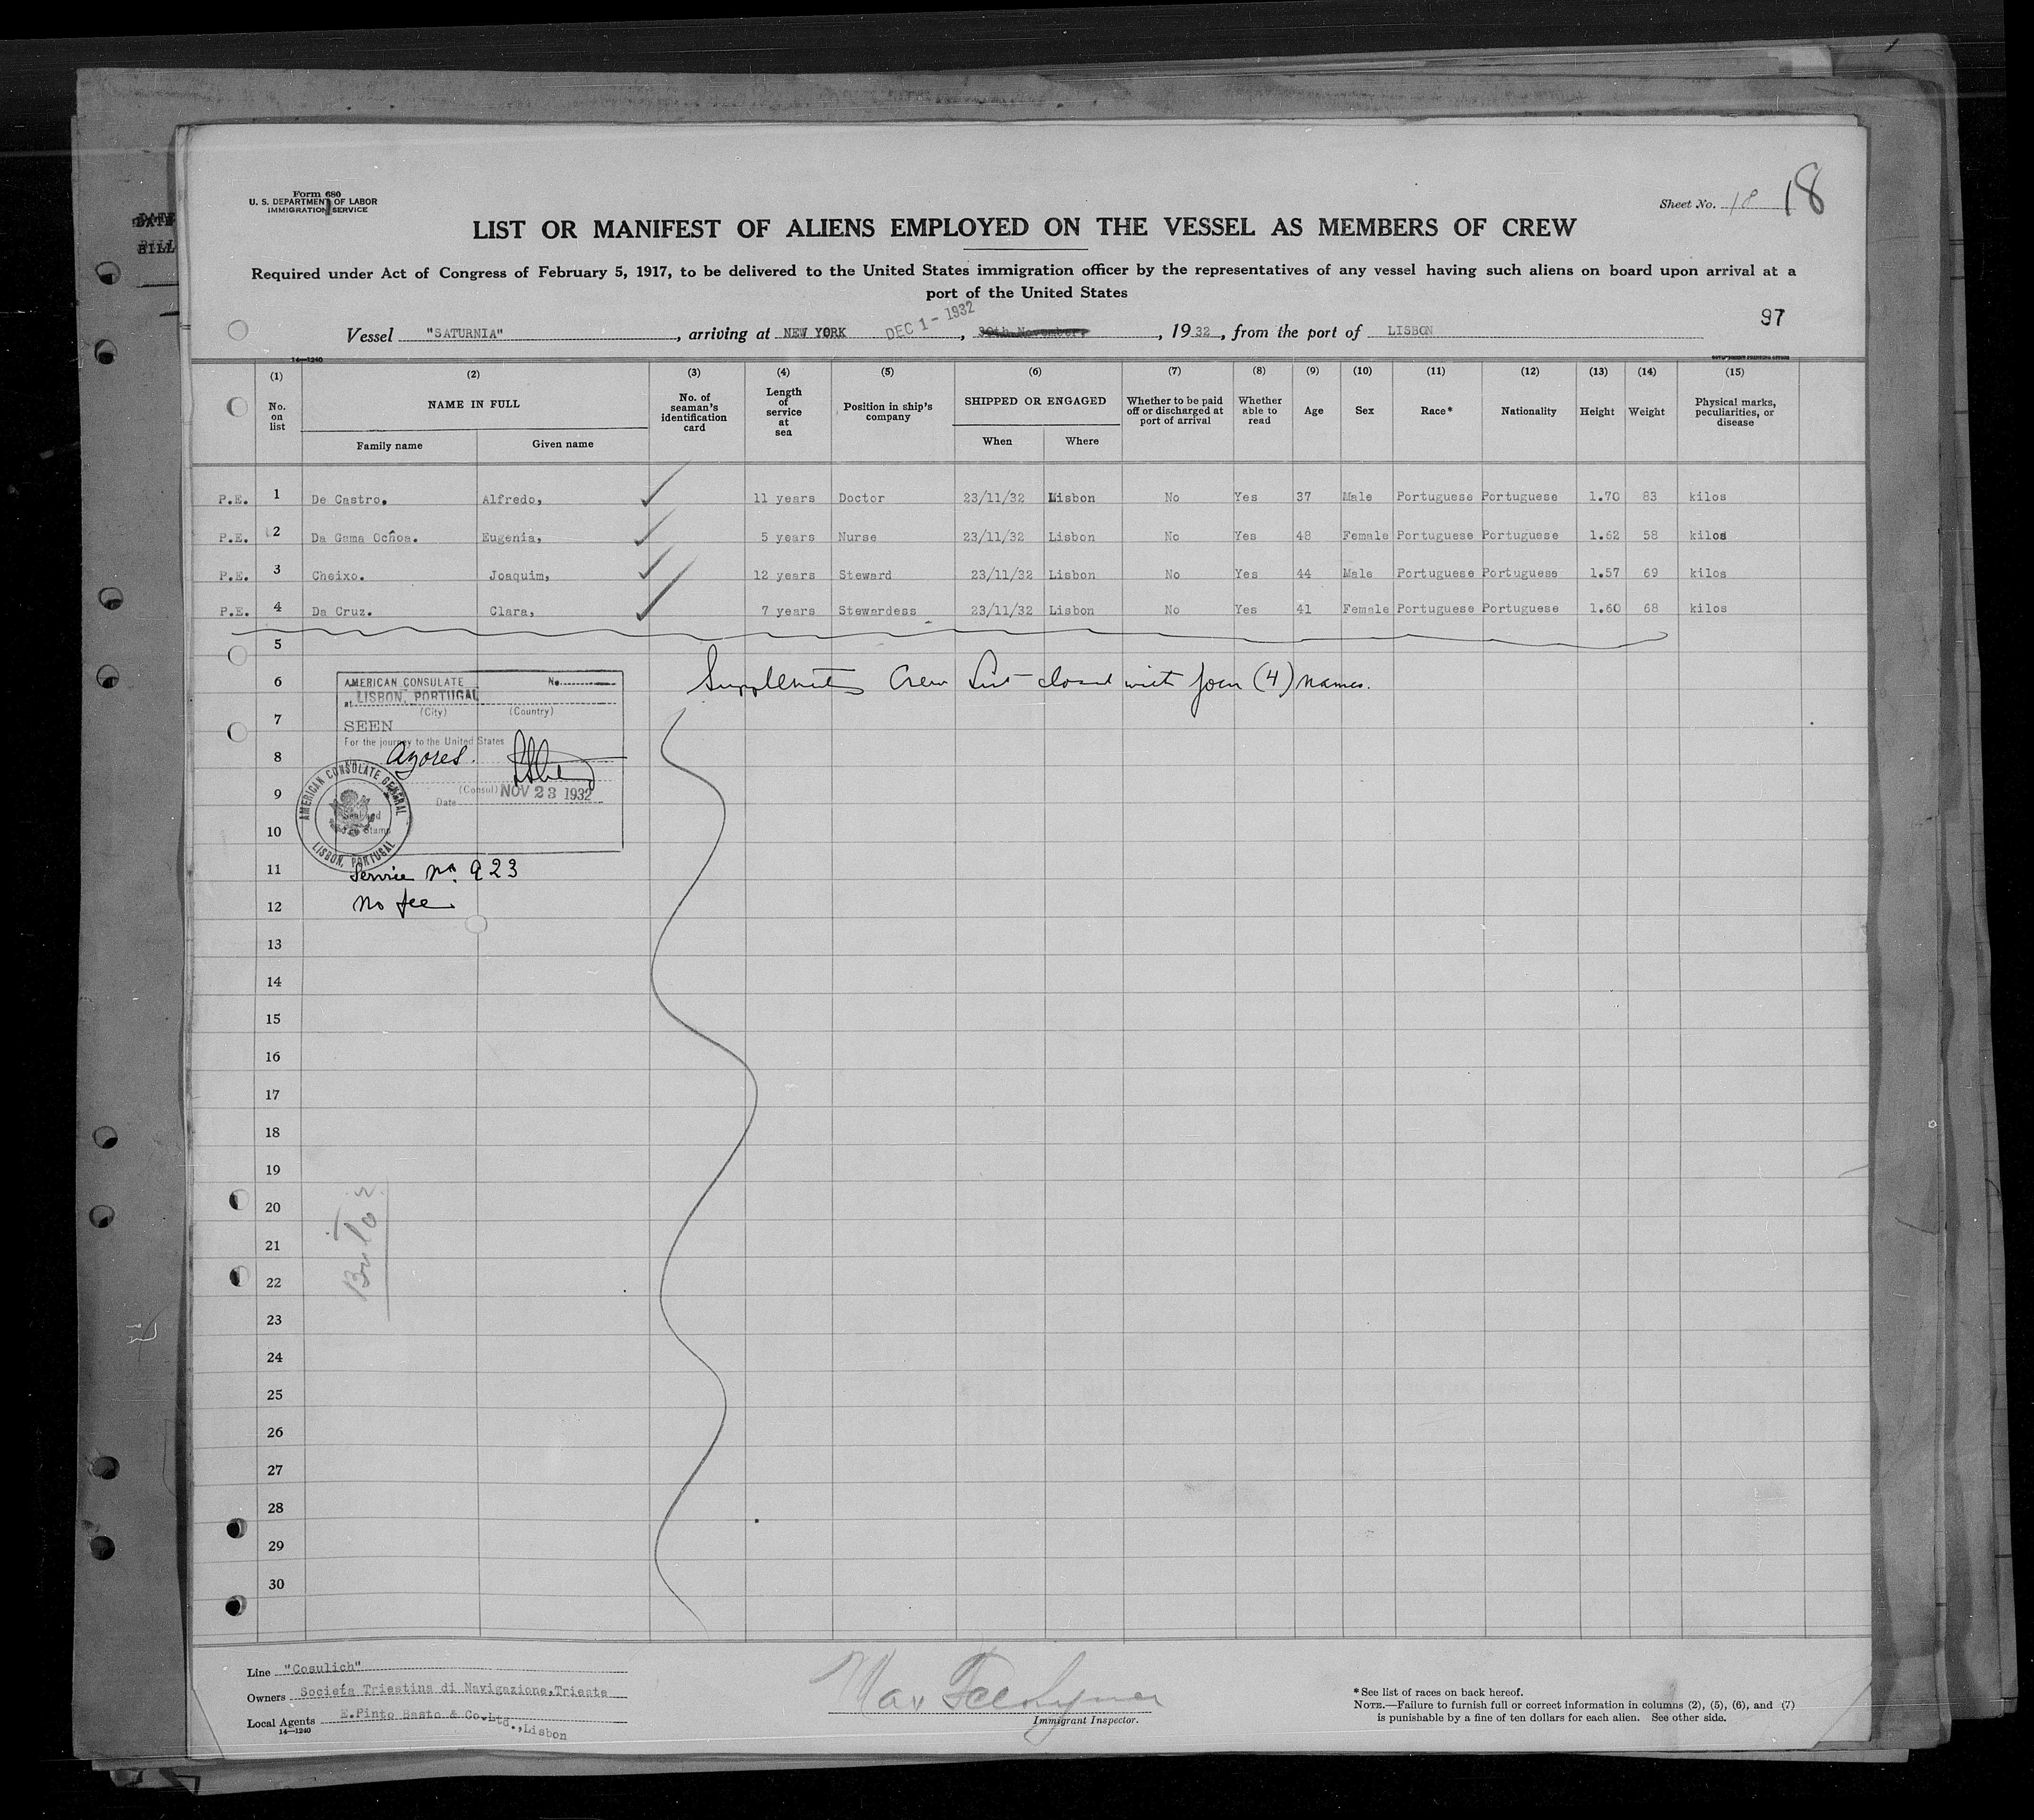 Form 680
U. S. DEPARTMENT OF LABOR
IMMIGRATION SERVICE
Sheet No. 18 18
LIST OR MANIFEST OF ALIENS EMPLOYED ON THE VESSEL AS MEMBERS OF CREW
Required under Act of Congress of February 5, 1917, to be delivered to the United States immigration officer by the representatives of any vessel having such aliens on board upon arrival at a
port of the United States
97
Vessel "SATURNIA", arriving at NEW YORK DEC 1 - 1932, 30th November, 1932, from the port of LISBON
14—1240
(1) (2) (3) (4) (5) (6) (7) (8) (9) (10) (11) (12) (13) (14) (15)
No. on list
NAME IN FULL
Family name Given name
No. of seaman's identification card
Length of service at sea
Position in ship's company
SHIPPED OR ENGAGED
When Where
Whether to be paid off or discharged at port of arrival
Whether able to read
Age Sex Race* Nationality Height Weight
Physical marks, peculiarities, or disease
P.E. 1 De Castro, Alfredo, 11 years Doctor 23/11/32 Lisbon No Yes 37 Male Portuguese Portuguese 1.70 83 kilos
P.E. 2 Da Gama Ochoa. Eugenia, 5 years Nurse 23/11/32 Lisbon No Yes 48 Female Portuguese Portuguese 1.62 58 kilos
P.E. 3 Cheixo. Joaquim, 12 years Steward 23/11/32 Lisbon No Yes 44 Male Portuguese Portuguese 1.57 69 kilos
P.E. 4 Da Cruz. Clara, 7 years Stewardess 23/11/32 Lisbon No Yes 41 Female Portuguese Portuguese 1.60 68 kilos
5
6
Crew List closed with four (4) names.
AMERICAN CONSULATE No.
at LISBON, PORTUGAL
(City) (Country)
7
SEEN
For the journey to the United States
8
Azores.
9
(Consul)
Date NOV 23 1932
AMERICAN CONSULATE GENERAL
LISBON, PORTUGAL
10
11
Service No. 923
12
No fee
13
14
15
16
17
18
19
20
21
22
23
24
25
26
27
28
29
30
Line "Cosulich"
Owners Societa Triestina di Navigazione, Trieste
Local Agents E.Pinto Basto & Co.Ltd., Lisbon
14—1240
Immigrant Inspector.
*See list of races on back hereof.
NOTE.—Failure to furnish full or correct information in columns (2), (5), (6), and (7)
is punishable by a fine of ten dollars for each alien. See other side.